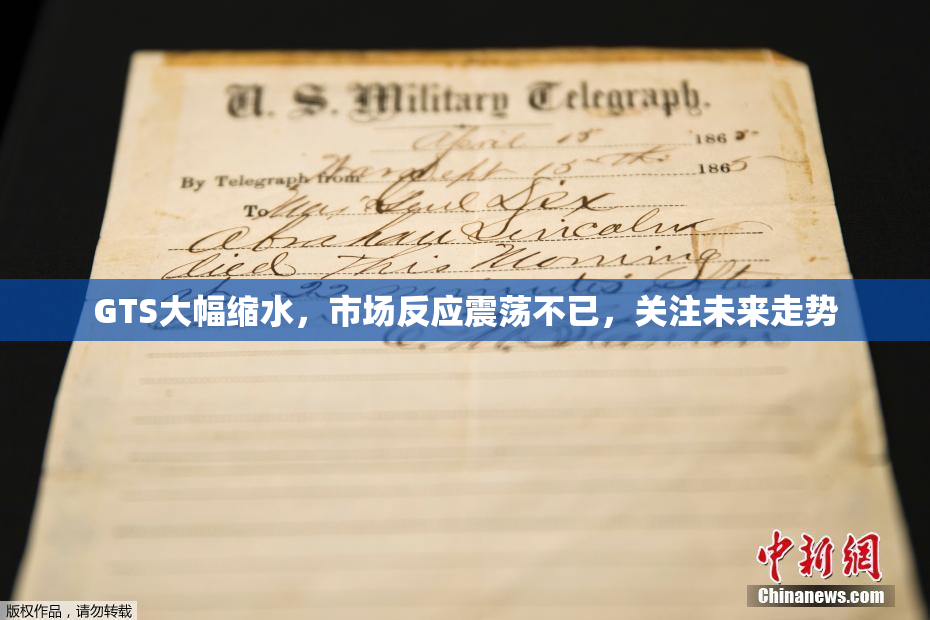 U. S. Military Telegraph.
April 15 1865
By Telegraph from War Dept 15th 1865
To Maj Genl Dix
Abraham Lincoln
died This Morning
at 22 minutes after
GTS大幅缩水，市场反应震荡不已，关注未来走势
Stanton
中新网
Chinanews.com
版权作品，请勿转载